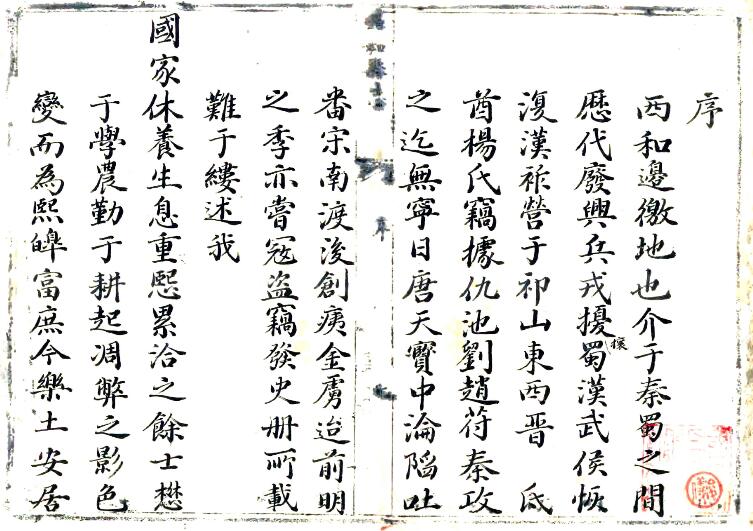 序
西和邊徼地也介于秦蜀之間
歷代廢興兵戎擾攘蜀漢武侯恢
復漢祚營于祁山東西晉氐
酋楊氏竊據仇池劉趙苻秦攻
之迄無寧日唐天寶中淪陷吐
番宋南渡後創痍金虜迨前明
之季亦嘗寇盜竊發史册所載
難于縷述我
國家休養生息重熙累洽之餘士懋
于學農勤于耕起凋弊之影色
變而為熙皞富庶令樂土安居